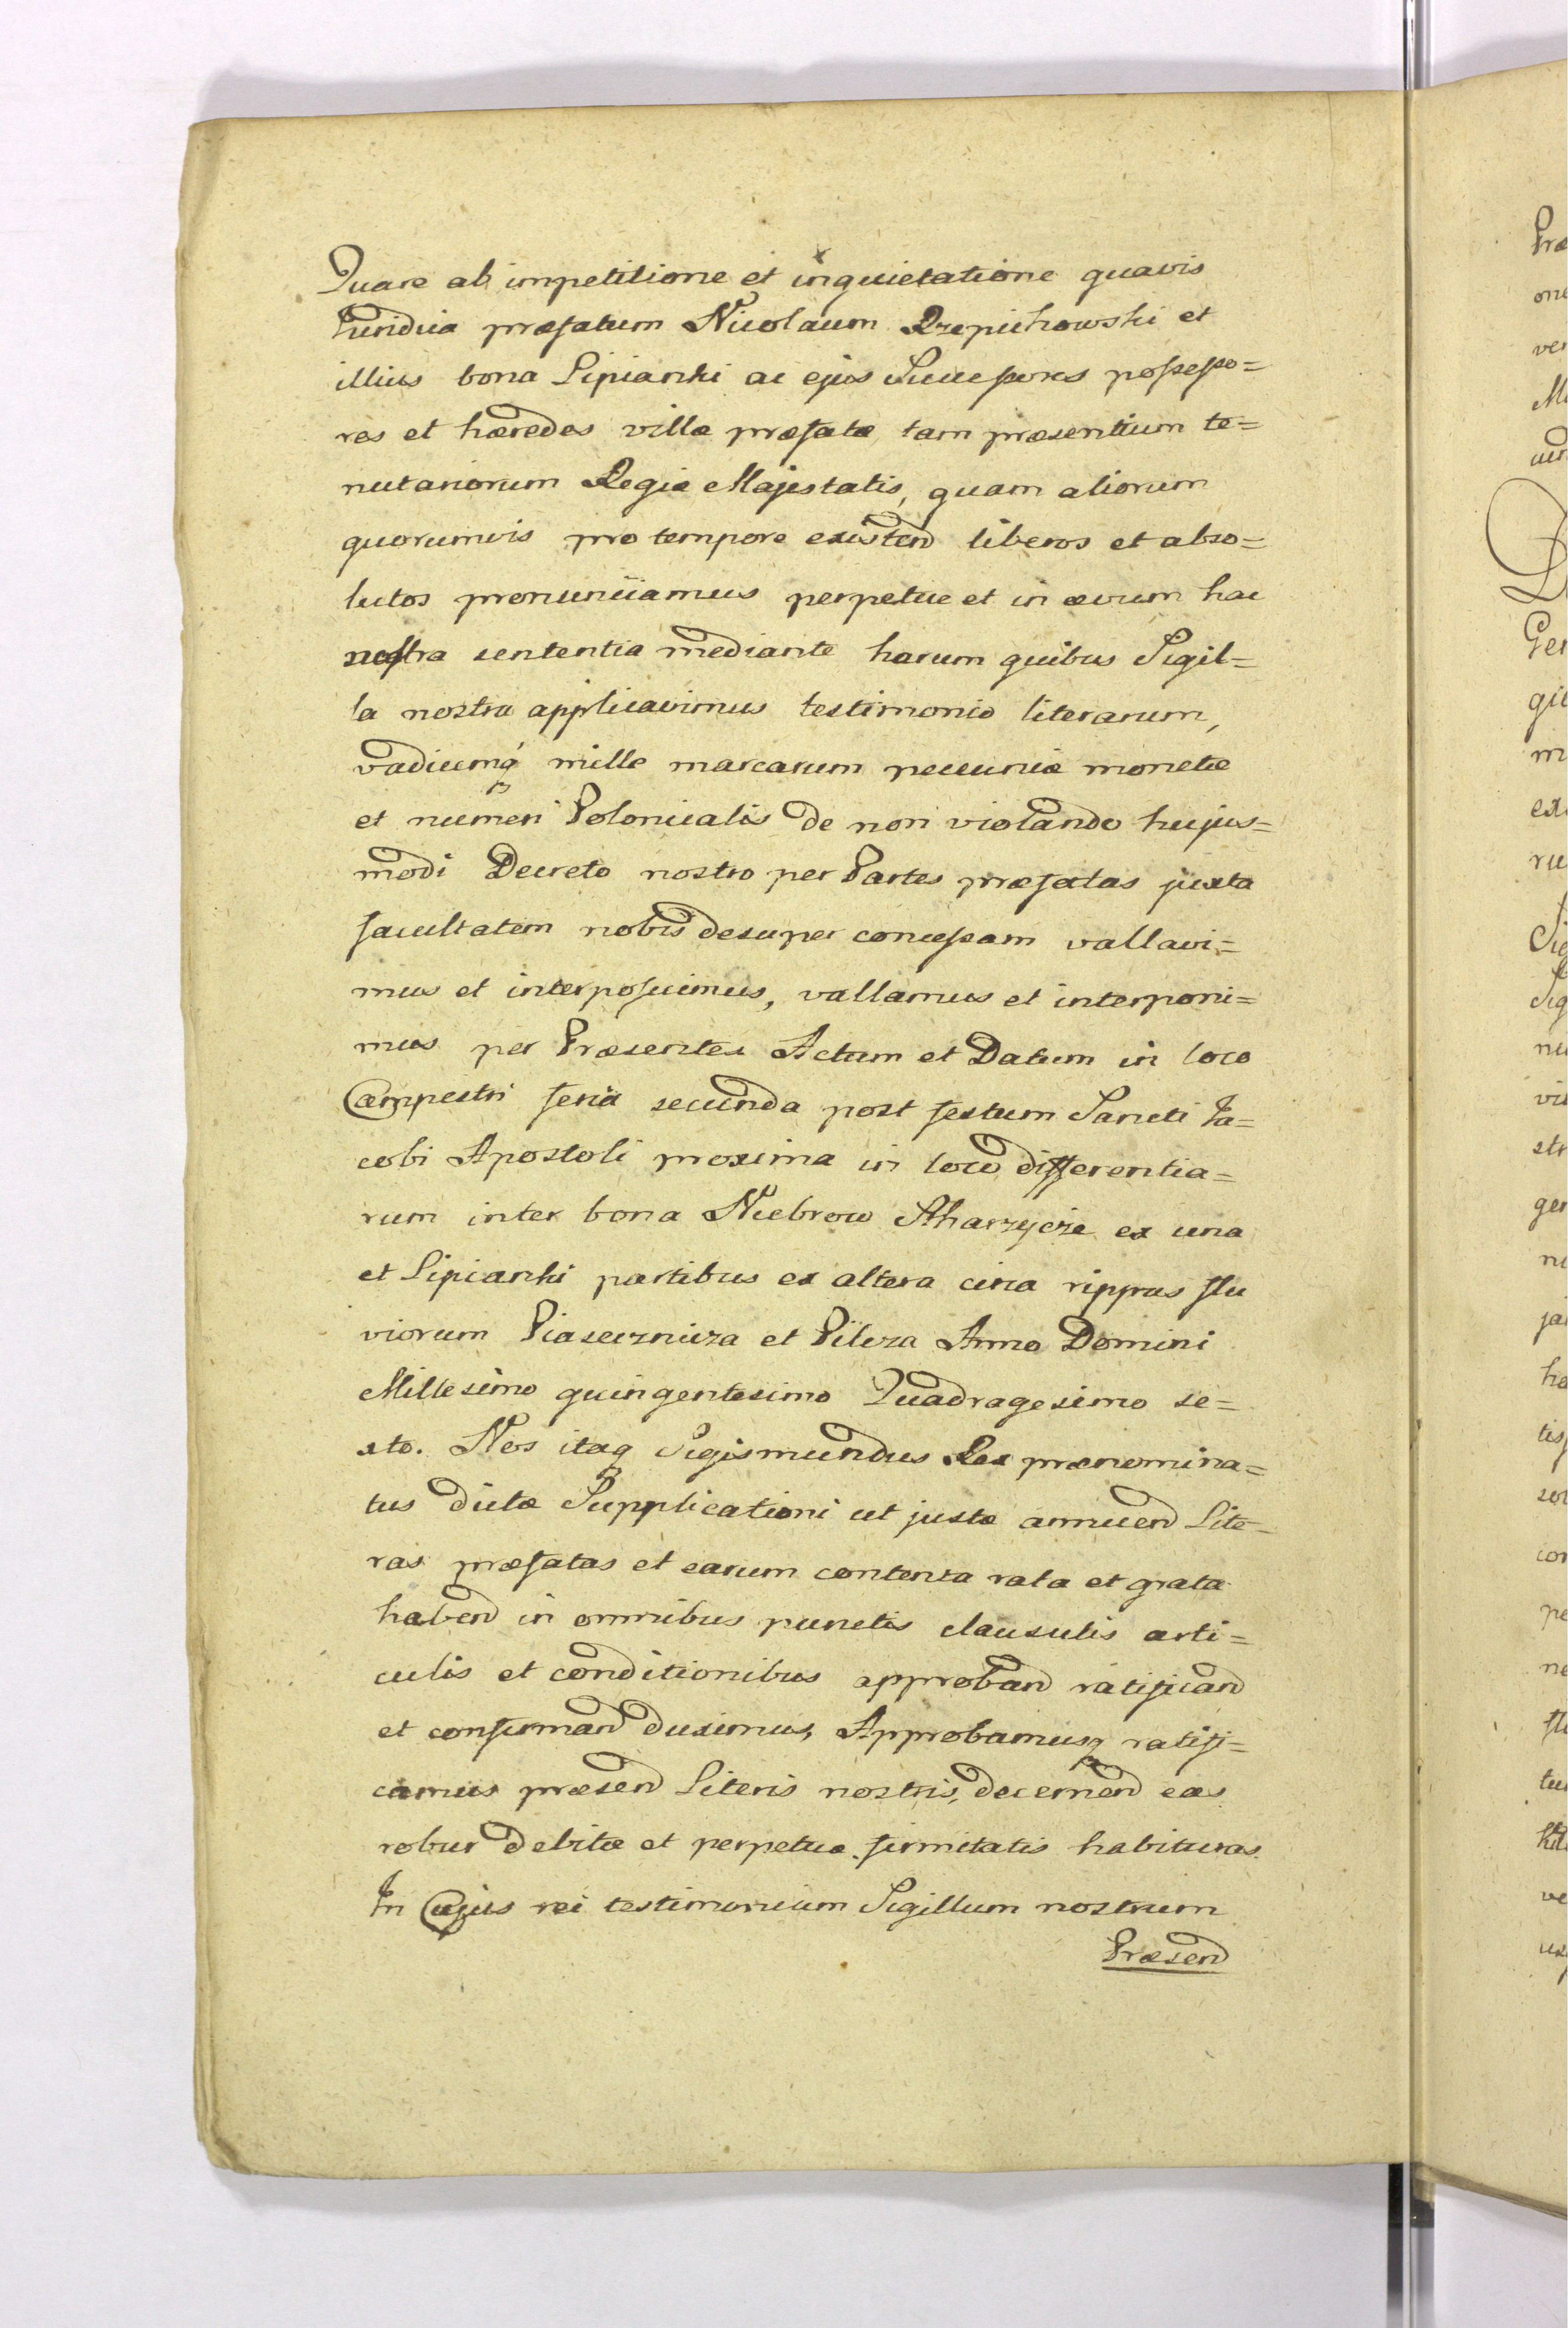 Quare ab impetitione et inquietatione quavis
Iuridica præfatum Nicolaum Rzepichowski et
illius bona Lipianki ac ejus Successores possesso=
res et hæredes villæ præfatæ, tam præsentium te=
nutariorum Regiæ Majestatis, quam aliorum
quorumvis pro tempore existend liberos et abso=
lutos pronunciamus perpetue et in ævum hac
nostra sententia mediante harum quibus Sigil=
la nostra applicavimus testimonio literarum,
vadiumq mille marcarum pecuniæ monetæ
et numeri Polonicalis de non violando hujus=
modi Decreto nostro per Partes præfatas juxta
facultatem nobis desuper concessam vallavi=
mus et interposuimus, vallamus et interponi=
mus per Præsentes Actum et Datum in loco
Campestri feria secunda post festum Sancti Ja=
cobi Apostoli proxima in loco differentia=
rum inter bona Niebrow Aharzycze ex una
et Lipianki partibus ex altera circa rippas flu
viorum Piasecznicza et Pilcza Anno Domini
Millesimo quingentesimo Quadragesimo se=
xto. Nos itaq Sigismundus Rex prænomina=
tus dictæ Supplicationi ut justæ annuend Lite=
ras præfatas et earum contenta rata et grata
habend in omnibus punctis clausulis arti=
culis et conditionibus approband ratificand
et confirmand duximus, Approbamusq ratifi=
camus præsend Literis nostris, decernend eas
robur debitæ et perpetuæ firmitatis habituras.
In Cujus rei testimonium Sigillum nostrum
Præsend